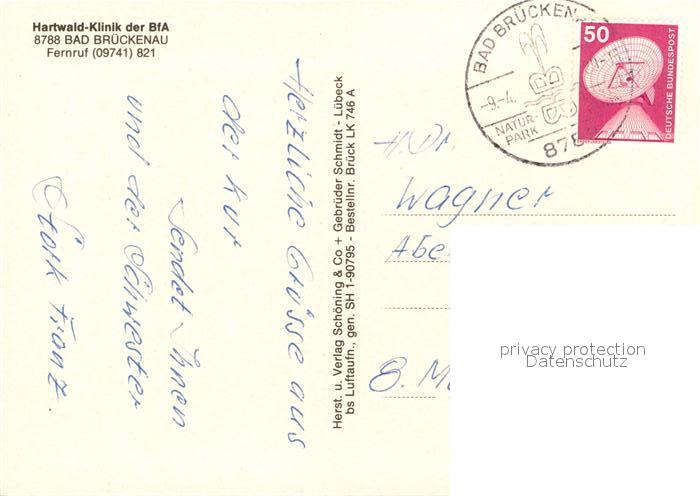 Hartwald-Klinik der BfA
8788 BAD BRÜCKENAU
Fernruf (09741) 821
Herzliche Grüsse aus
der Kur
sendet Ihnen
und der Schwester
Stark Franz.
Herst. u. Verlag Schöning & Co + Gebrüder Schmidt - Lübeck
bs Luftaufn., gen. SH 1-90795 - Bestellnr. Brück LK 746 A
BAD BRÜCKENAU
-9.-4.
NATUR-
PARK
878
50
DEUTSCHE BUNDESPOST
H. Dr.
Wagner
Abe
8. M
privacy protection
Datenschutz